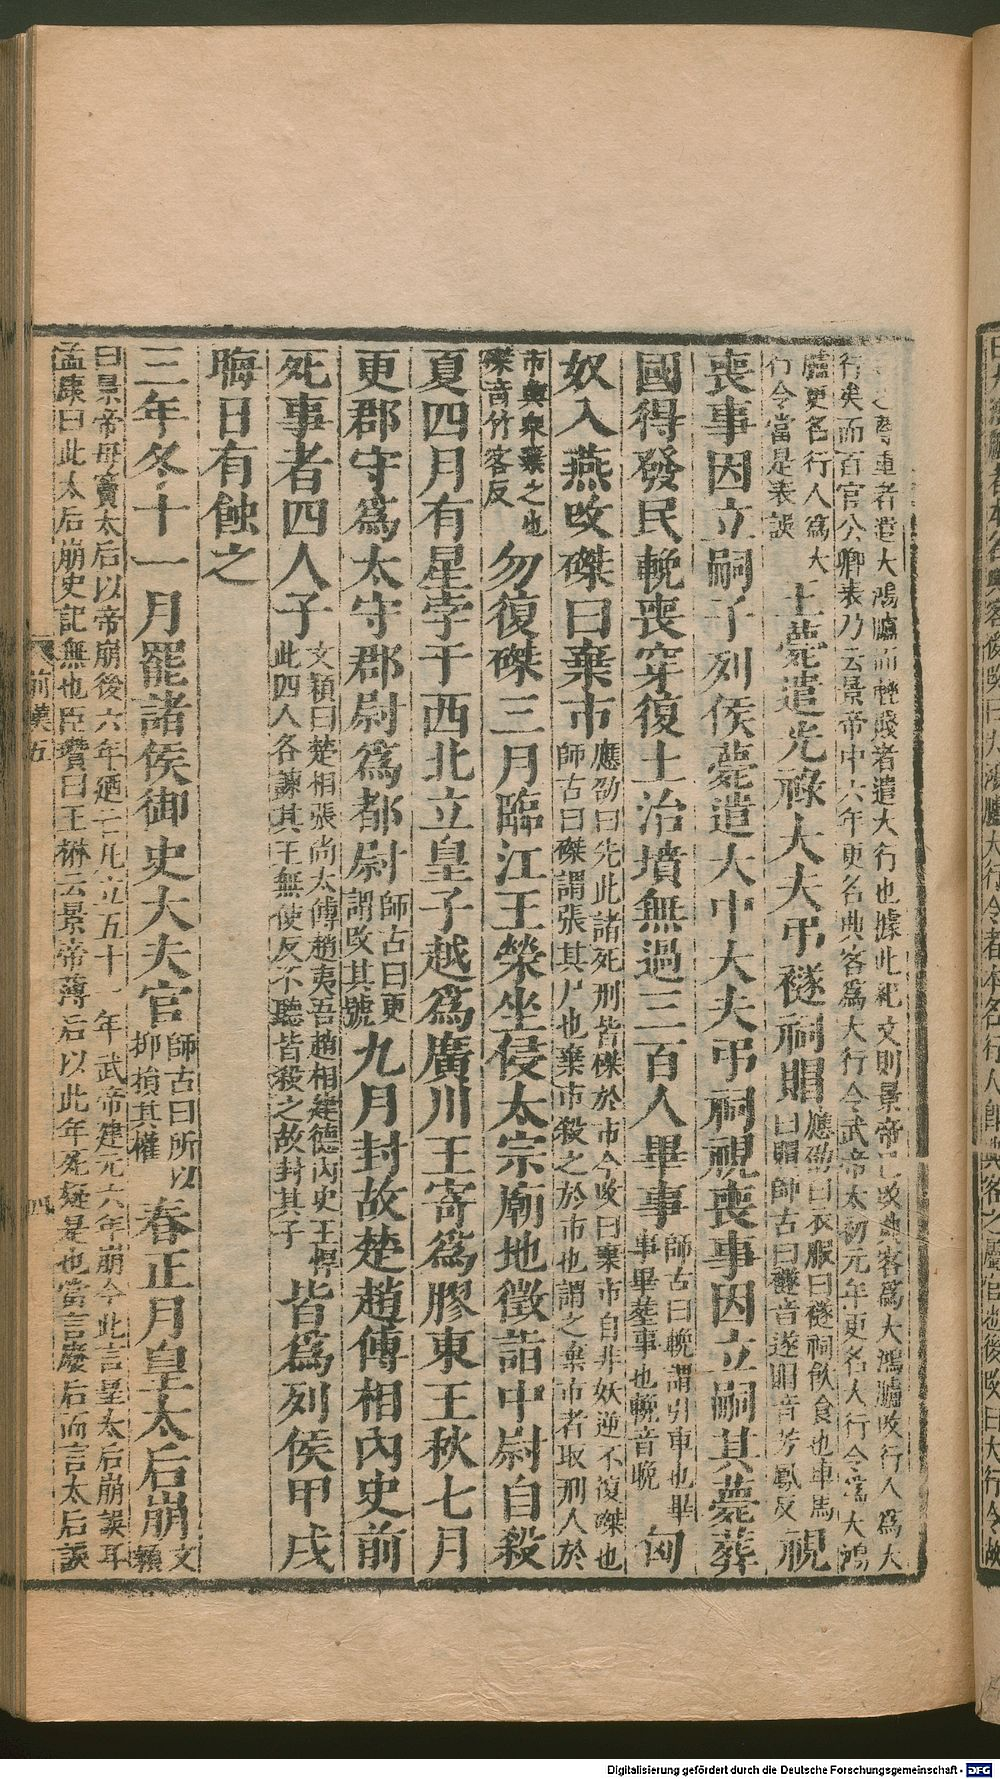 之尊重者遣大鴻臚而輕賤者遣大行也據此紀文則景帝已改典客爲大鴻臚改行人爲大
行矣而百官公卿表乃云景帝中六年更名典客爲大行令武帝太初元年更名大行令爲大鴻
臚更名行人爲大
行令當是表誤
王薨遣光祿大夫弔襚祠賵
應劭曰衣服曰襚祠飲食也車馬
曰賵師古曰襚音遂賵音芳鳳反
視
喪事因立嗣子列侯薨遣大中大夫弔祠視喪事因立嗣其薨葬
國得發民輓喪穿復土治墳無過三百人畢事
師古曰輓謂引車也畢
事畢葬事也輓音晚
匈
奴入燕改磔曰棄市
應劭曰先此諸死刑皆磔於市今改曰棄市自非妖逆不復磔也
師古曰磔謂張其尸也棄市殺之於市也謂之棄市者取刑人於
市與衆棄之也
磔音竹客反
勿復磔三月臨江王榮坐侵太宗廟地徵詣中尉自殺
夏四月有星孛于西北立皇子越爲廣川王寄爲膠東王秋七月
更郡守爲太守郡尉爲都尉
師古曰更
謂改其號
九月封故楚趙傅相內史前
死事者四人子
文穎曰楚相張尚太傅趙夷吾趙相建德內史王悍
此四人各諫其王無使反不聽皆殺之故封其子
皆爲列侯甲戌
晦日有蝕之
三年冬十一月罷諸侯御史大夫官
師古曰所以
抑損其權
春正月皇太后崩
文穎
曰景帝母竇太后以帝崩後六年廼亡凡立五十一年武帝建元六年崩今此言皇太后崩誤耳
孟康曰此太后崩史記無也臣瓚曰王楙云景帝薄后以此年死疑是也當言廢后而言太后誤
前漢五
四
Digitalisierung gefördert durch die Deutsche Forschungsgemeinschaft - DFG